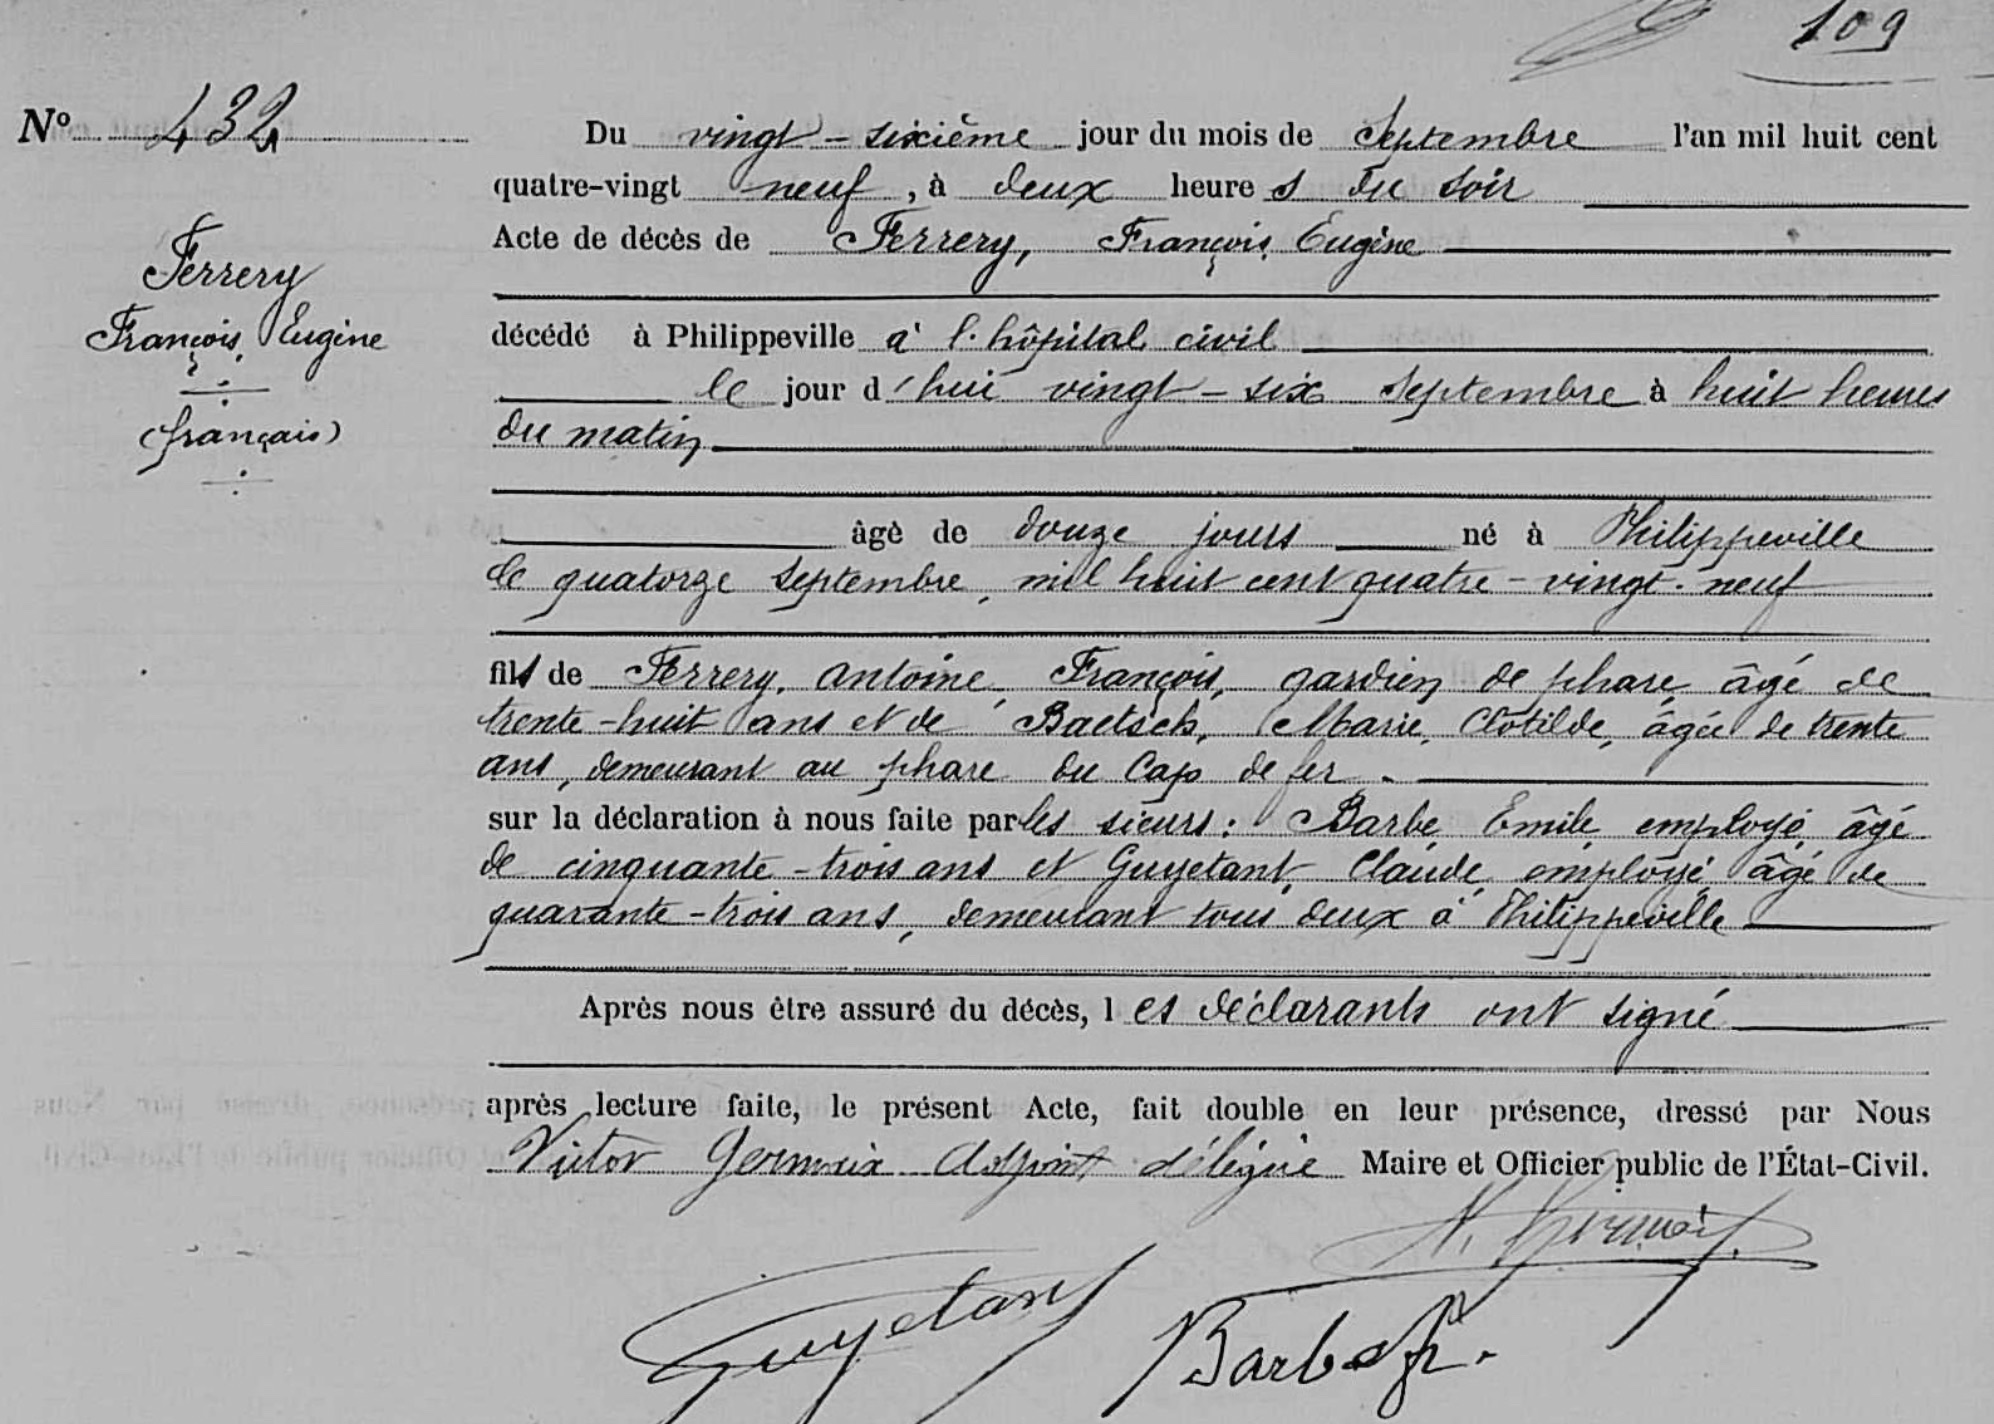 109
Nº 432
Ferrery
François, Eugène
(français)
Du vingt-sixième jour du mois de Septembre l'an mil huit cent
quatre-vingt neuf, à deux heures du soir
Acte de décès de Ferrery, François, Eugène
décédé à Philippeville à l'hôpital civil
le jour d'hui vingt-six Septembre à huit heures
du matin
âgé de douze jours né à Philippeville
le quatorze Septembre, mil huit cent quatre-vingt-neuf
fils de Ferrery, Antoine, François, gardien de phare, âgé de
trente-huit ans et de Baetsch, Marie, Clotilde, âgée de trente
ans, demeurant au phare du Cap de fer.
sur la déclaration à nous faite par les sieurs: Barbe, Emile, employé, âgé
de cinquante-trois ans et Guyetant, Claude, employé, âgé de
quarante-trois ans, demeurant tous deux à Philippeville
Après nous être assuré du décès, les déclarants ont signé
après lecture faite, le présent Acte, fait double en leur présence, dressé par Nous
Victor Germaix Adjoint délégué Maire et Officier public de l'État-Civil.
Guyetant
Barbe